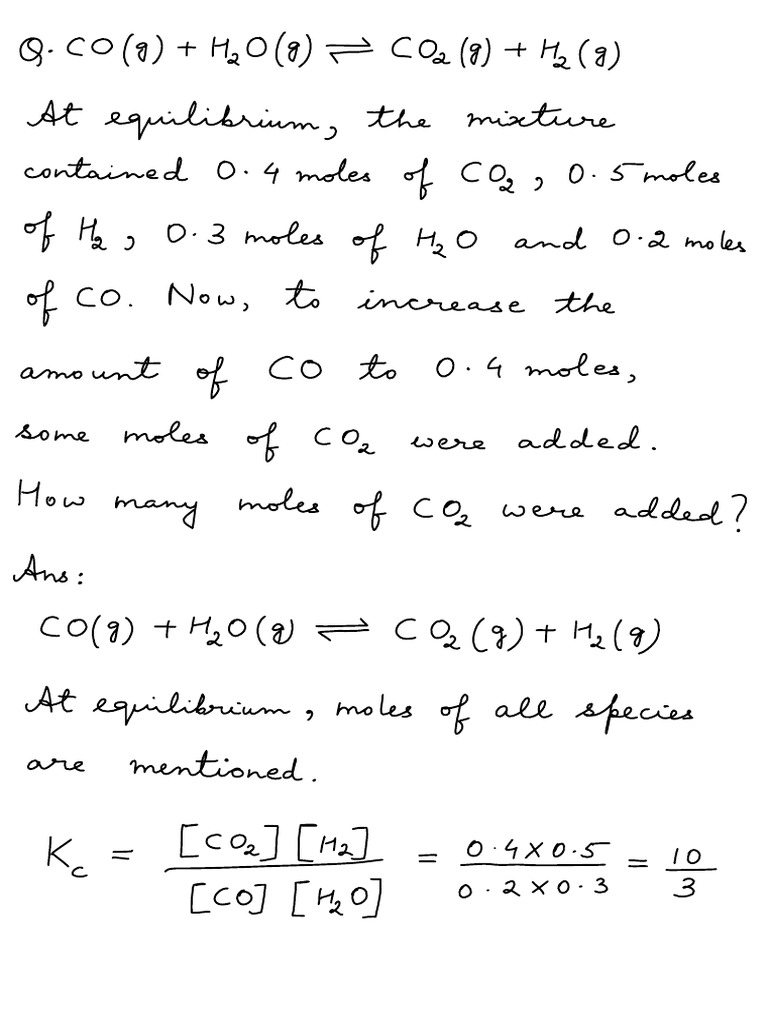 Q. CO(g) + H₂O(g) ⇌ CO₂(g) + H₂(g)
At equilibrium, the mixture
contained 0.4 moles of CO₂, 0.5 moles
of H₂, 0.3 moles of H₂O and 0.2 moles
of CO. Now, to increase the
amount of CO to 0.4 moles,
some moles of CO₂ were added.
How many moles of CO₂ were added?
Ans:
CO(g) + H₂O(g) ⇌ CO₂(g) + H₂(g)
At equilibrium, moles of all species
are mentioned.
K_c = [CO₂][H₂] / [CO][H₂O] = 0.4×0.5 / 0.2×0.3 = 10/3